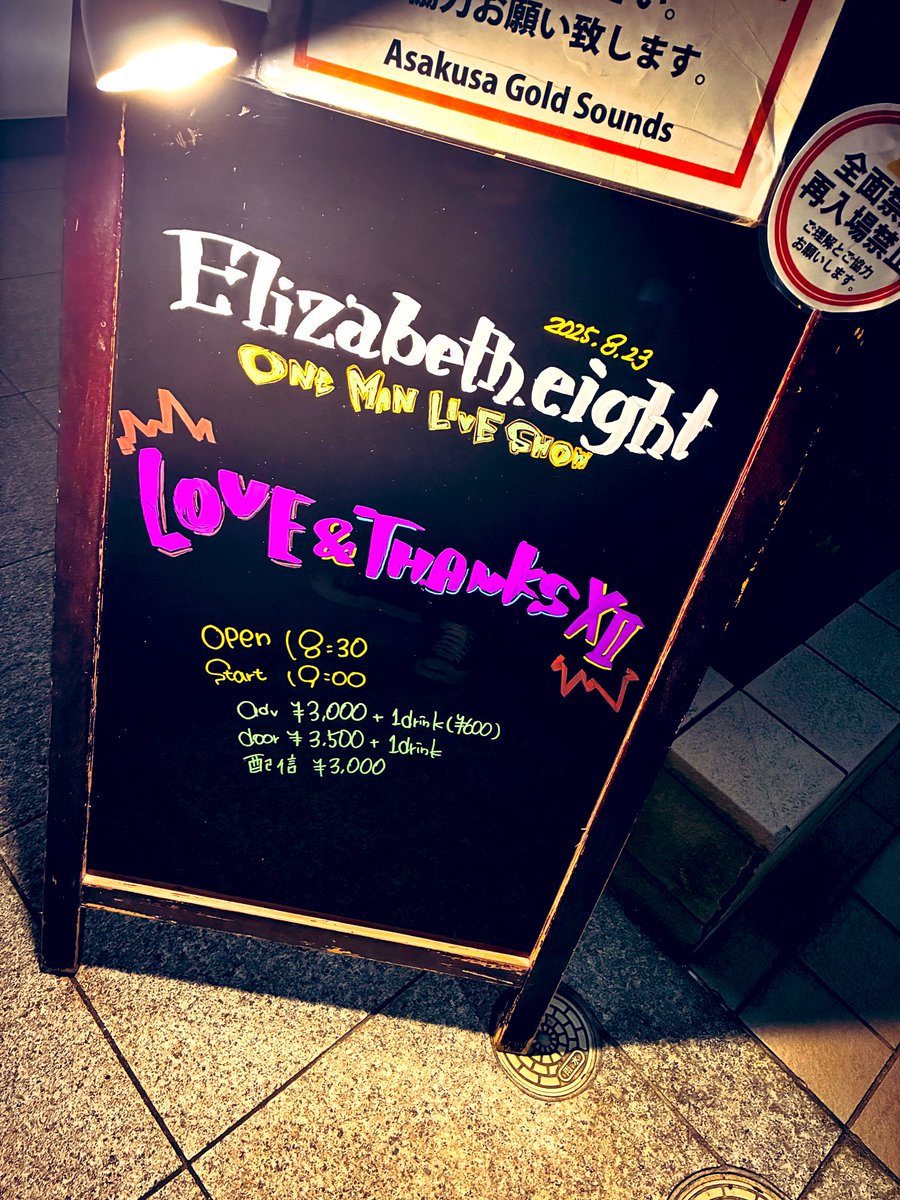 協力お願い致します。
Asakusa Gold Sounds
再入場禁止
ご理解とご協力
お願いします。
Elizabeth.eight
2025.8.23
ONE MAN LIVE SHOW
LOVE & THANKS XII
OPEN 18:30
Start 19:00
adv ¥3,000 + 1drink (¥600)
door ¥3.500 + 1drink
配信 ¥3,000